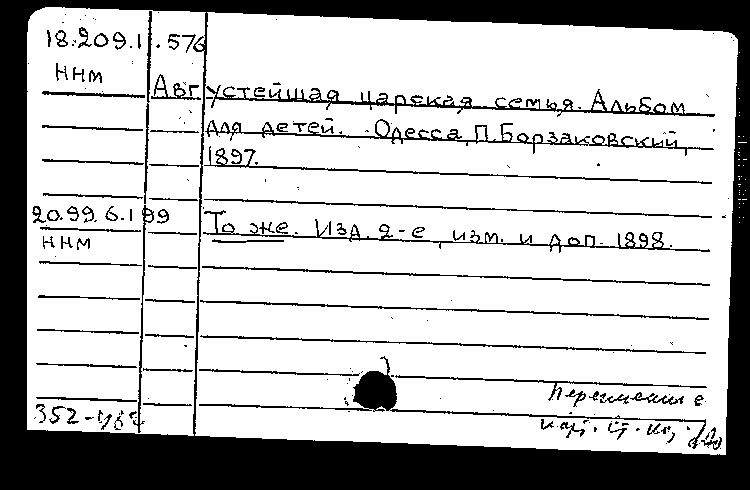 18.209.1.576
ннм
Августейшая царская семья. Альбом
для детей. Одесса, П. Борзаковский,
1897.
20.99.6.199
ннм
То же. Изд. 2-е, изм. и доп. 1898.
352-